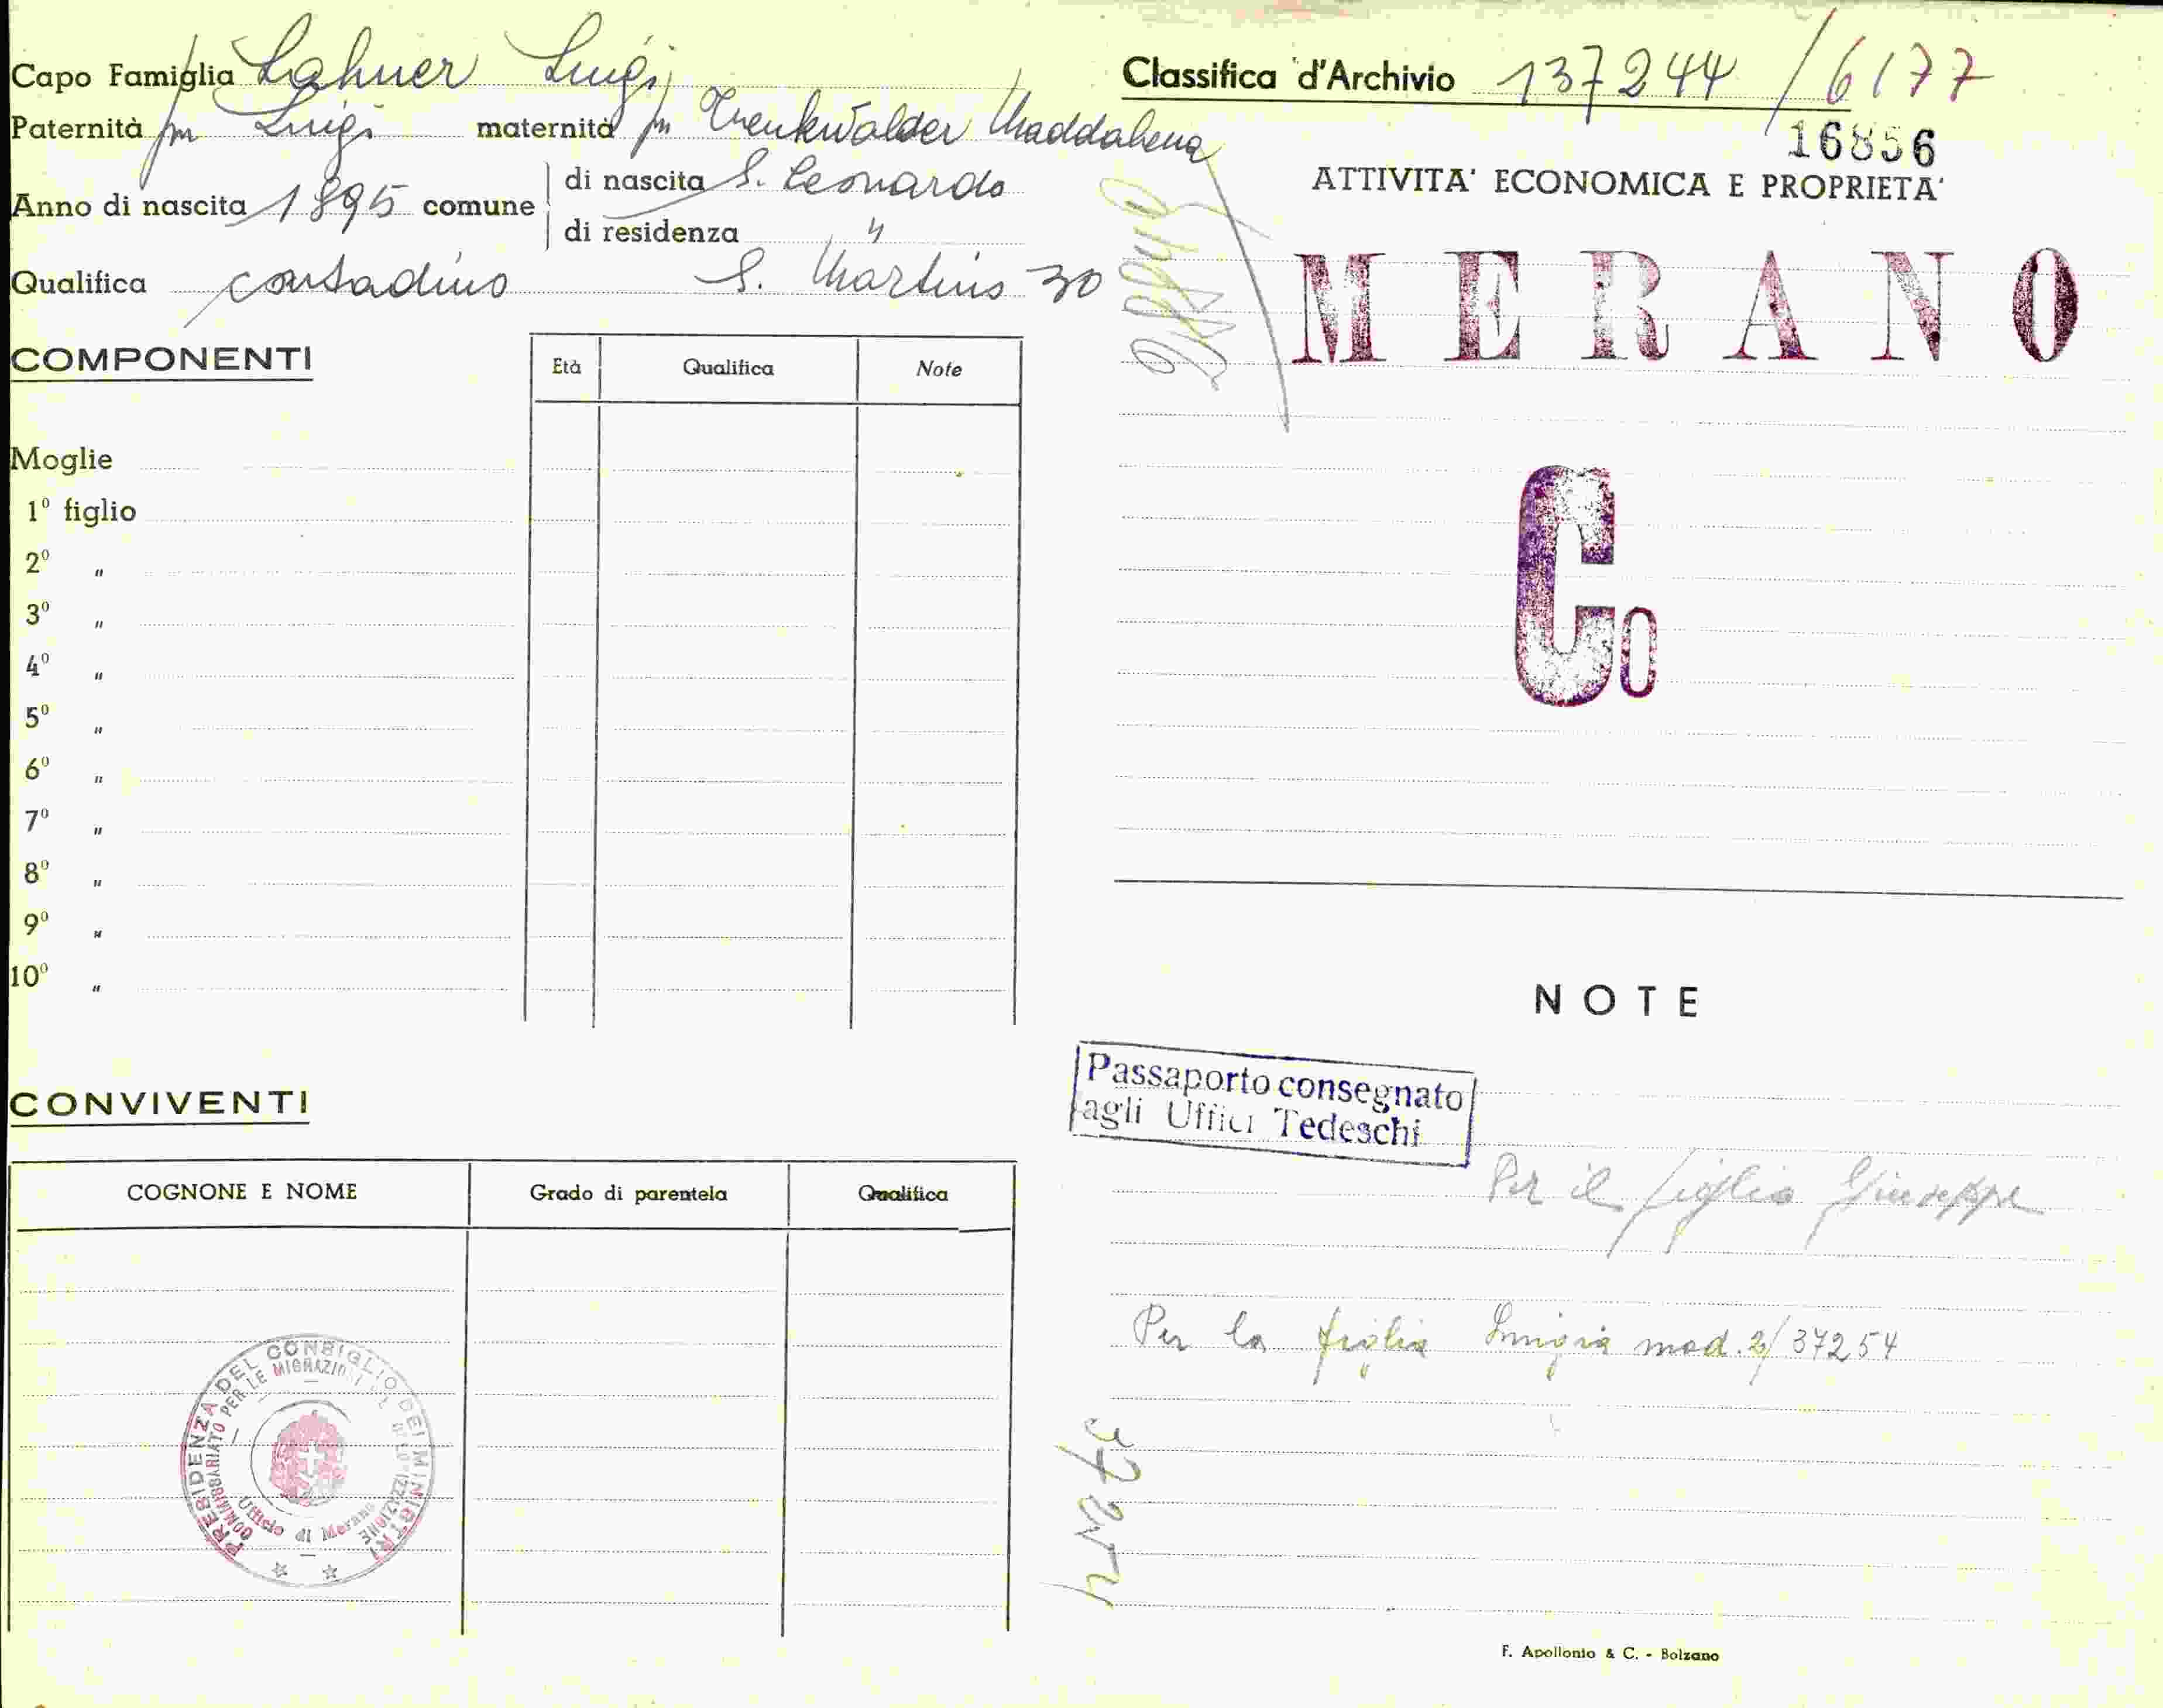 Capo Famiglia Lahner Luigi
Paternità fu Luigi maternità fu Trenkwalder Maddalena
Anno di nascita 1895 comune
di nascita S. Leonardo
di residenza "
Qualifica contadino S. Martino 30
COMPONENTI
Età Qualifica Note
Moglie
1º figlio
2º "
3º "
4º "
5º "
6º "
7º "
8º "
9º "
10º "
CONVIVENTI
COGNONE E NOME Grado di parentela Qualifica
PRESIDENZA DEL CONSIGLIO DEI MINISTRI
COMMISSARIATO PER LE MIGRAZIONI
Ufficio di Merano
Classifica d'Archivio 137244 / 6177
16856
ATTIVITA' ECONOMICA E PROPRIETA'
MERANO
Co
NOTE
Passaporto consegnato
agli Uffici Tedeschi
Per il figlio Giuseppe
Per la figlia Luigia mod. 2/ 37254
37254
F. Apollonio & C. - Bolzano